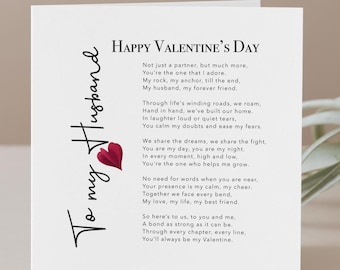 To my Husband
HAPPY VALENTINE'S DAY
Not just a partner, but much more,
You're the one that I adore.
My rock, my anchor, till the end,
My husband, my forever friend.
Through life's winding roads, we roam,
Hand in hand, we've built our home.
In laughter loud or quiet tears,
You calm my doubts and ease my fears.
We share the dreams, we share the fight.
You are my day, you are my night.
In every moment, high and low,
You're the one who helps me grow.
No need for words when you are near,
Your presence is my calm, my cheer.
Together we face every bend,
My love, my life, my best friend.
So here's to us, to you and me,
A bond as strong as it can be,
Through every chapter, every line,
You'll always be my Valentine.